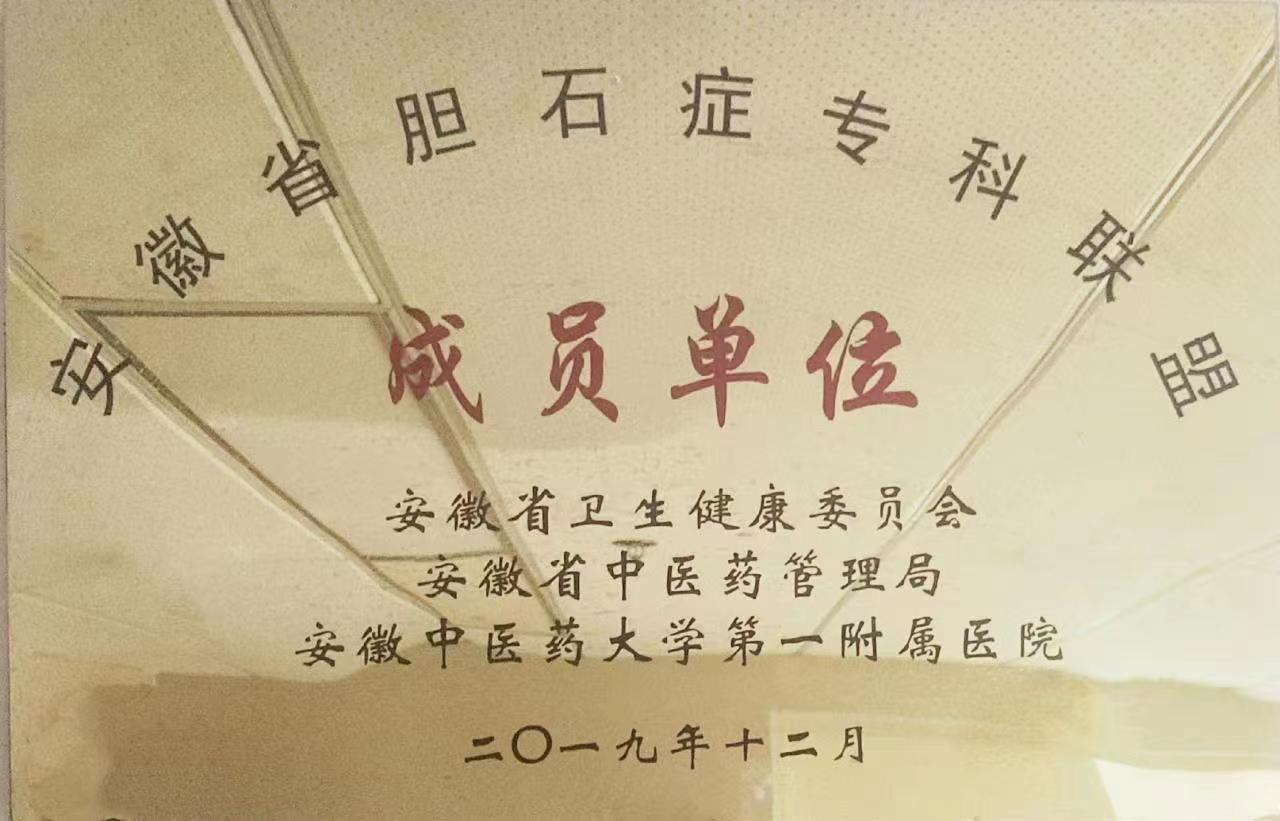 安徽省胆石症专科联盟
成员单位
安徽省卫生健康委员会
安徽省中医药管理局
安徽中医药大学第一附属医院
二〇一九年十二月